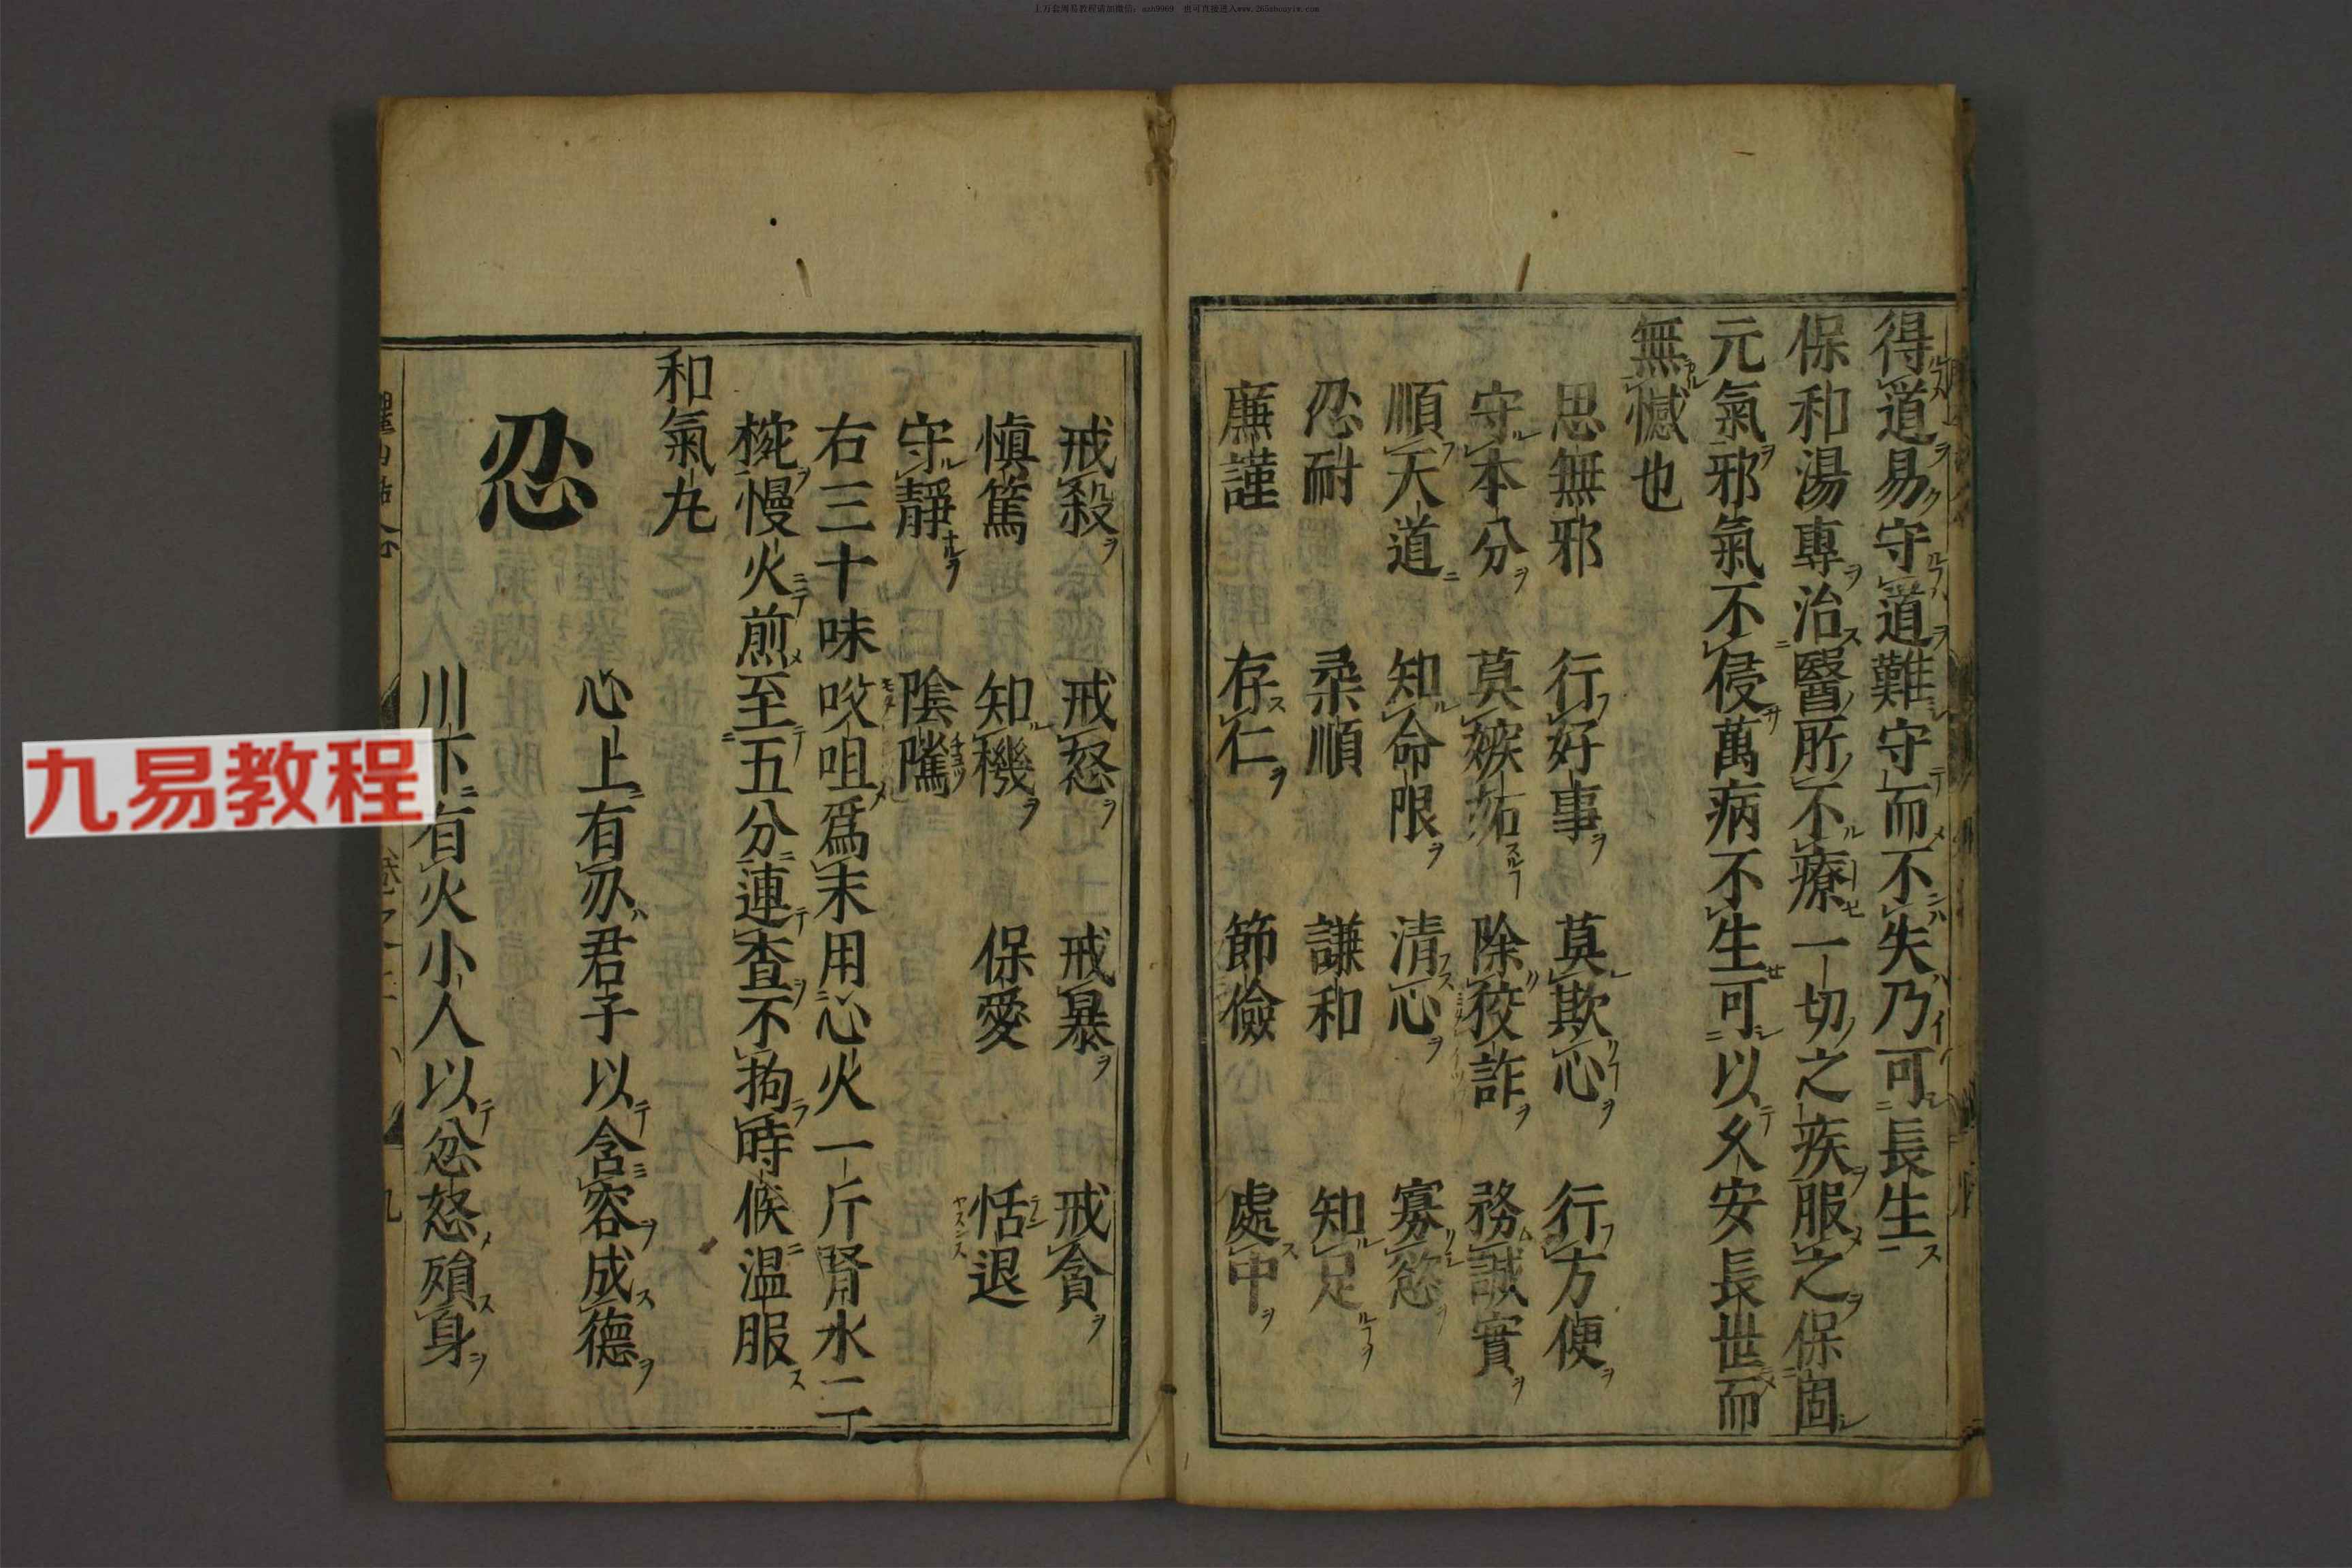 上万套周易教程请加微信：azh9969　也可直接进入www.265zhouyiw.com
得道易守道難守而不失乃可長生
保和湯專治醫所不療一切之疾服之保固
元氣邪氣不侵萬病不生可以久安長世而
無憾也
思無邪　行好事　莫欺心　行方便
守本分　莫嫉妬　除狡詐　務誠實
順天道　知命限　清心　寡慾
忍耐　柔順　謙和　知足
廉謹　存仁　節儉　處中
戒殺　戒怒　戒暴　戒貪
慎篤　知機　保愛　恬退
守靜　陰騭
右三十味㕮咀爲末用心火一斤腎水二
椀慢火煎至五分連查不拘時候温服
和氣丸
忍
心上有刃君子以含容成德
川下有火小人以忿怒殞身
九易教程